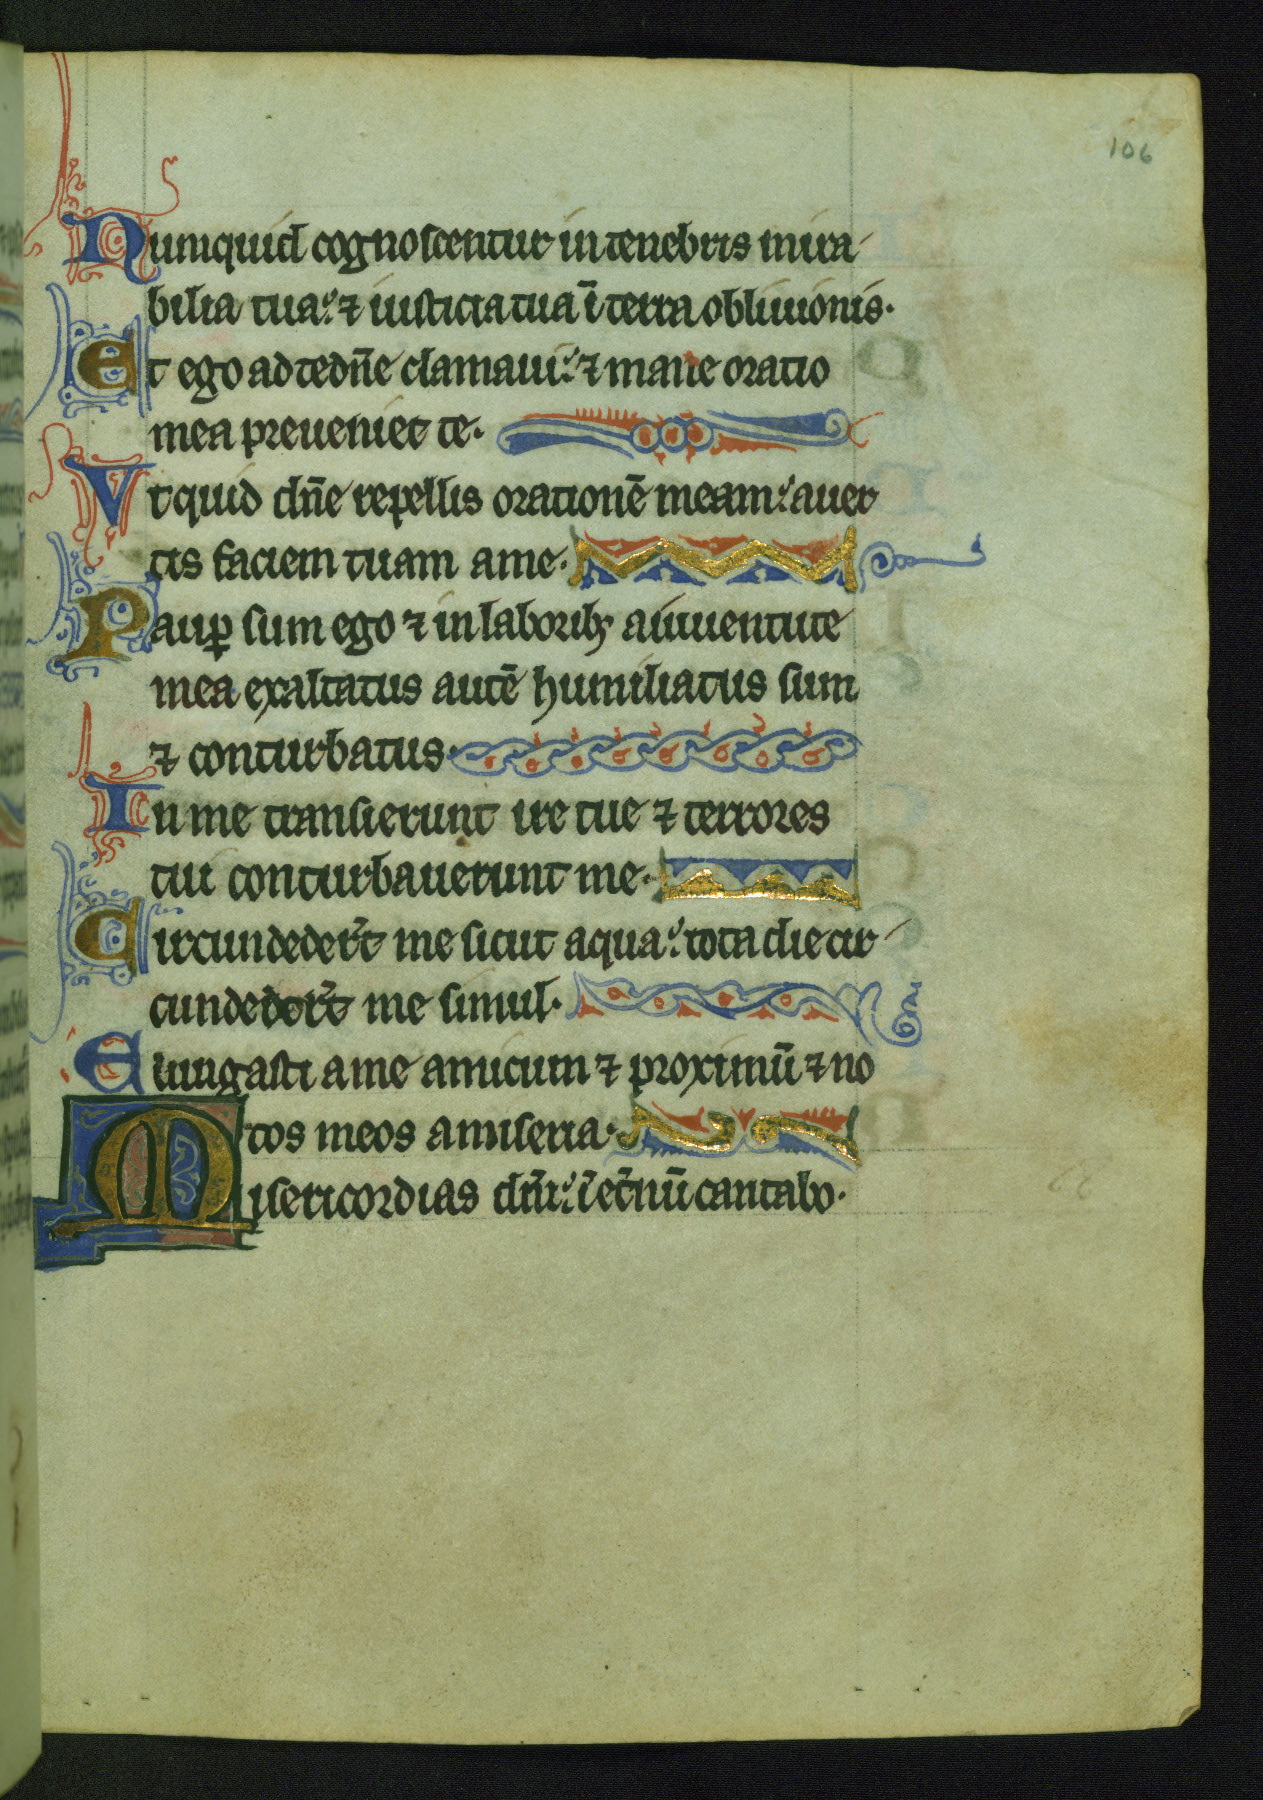 106
Numquid cognoscentur in tenebris mira
bilia tua: ⁊ iusticia tua ī terra obliuionis.
Et ego ad te dn̄e clamaui: ⁊ mane oratio
mea preueniet te.
Vt quid dn̄e repellis orationē meam: auer
tis faciem tuam a me.
Paup̱ sum ego ⁊ in laboribꝫ a iuuentute
mea exaltatus autē humiliatus sum
⁊ conturbatus.
In me transierunt ire tue ⁊ terrores
tui conturbauerunt me.
Circundedert̄ me sicut aqua: tota die cir
cundedert̄ me simul.
Elungasti a me amicum ⁊ proximū ⁊ no
tos meos a miseria.
Misericordias dn̄i: ī et̄nū cantabo.